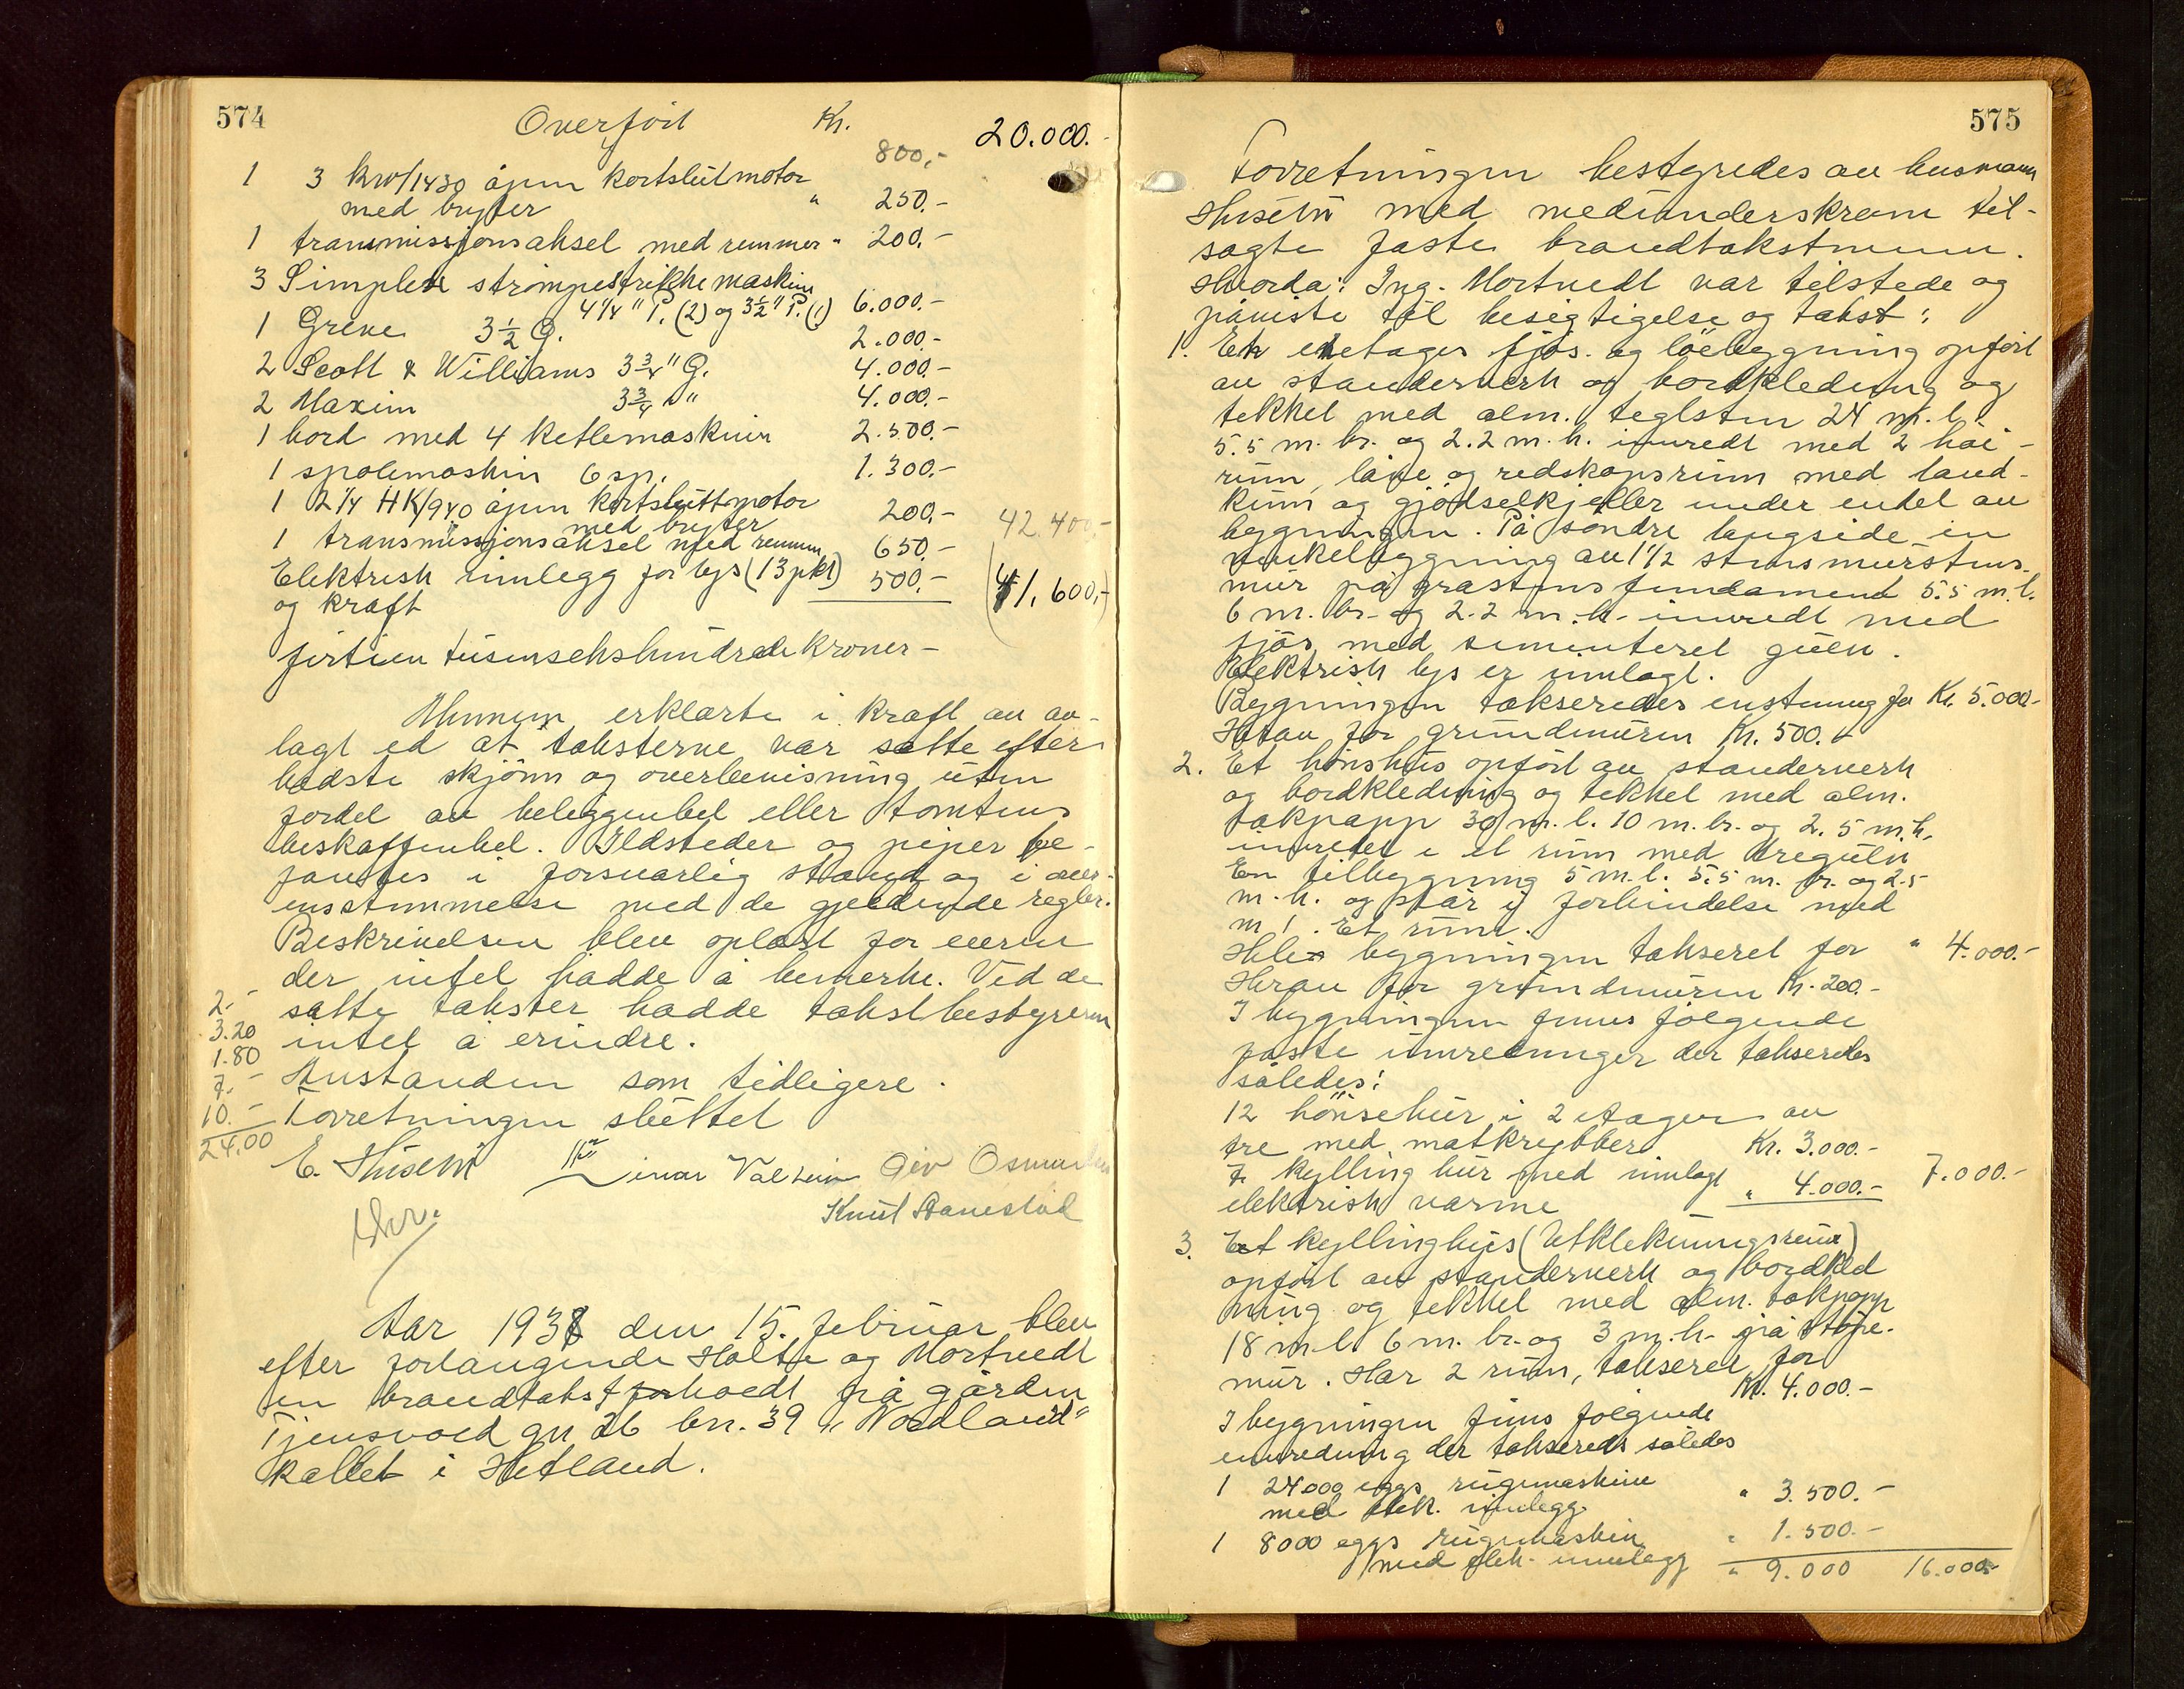 574
Overført Kr. 20.000.-
800,-
1 3 kw/1430 åpen kortslutmotor
med bryter " 250.-
1 transmissjonsaksel med remmer " 200.-
3 Simplex strømpestrikkemaskin
4 1/4" P. (2) og 3 1/2" P. (1) 6.000.-
1 Greve 3 1/2 G. 2.000.-
2 Scott & Williams 3 3/4" G. 4.000.-
2 Maxim 3 3/4 " 4.000.-
1 bord med 4 ketlemaskiner 2.500.-
1 spolemaskin 6 sp. 1.300.-
1 2 1/4 HK/940 åpen kortsluttmotor
med bryter 200.- 42.400,-
1 transmissjonsaksel med remmer 650.-
Elektrisk innlegg for lys (13 pkt) 500.- (41.600,-)
og kraft
førtien tusensekshundrede kroner -
Mennene erklærte i kraft av av-
lagt ed at taksterne var satte efter
bedste skjønn og overbevisning uten
fordel av beliggenhet eller tomtens
beskaffenhet. Ildsteder og piper be-
fantes i forsvarlig stand og i over-
ensstemmelse med de gjeldende regler.
Beskrivelsen blev oplæst for eieren
der intet hadde å bemerke. Ved de
2.- satte takster hadde takstbestyreren
3.20 intet å erindre.
1.80
7.- Avstanden som tidligere.
10.- Forretningen sluttet
24.00
E. Huseby Einar Valheim Giv Osmundsen
Knut Stanestøl
Aar 1938 den 15. februar blev
efter forlangende Holte og Mortvedt
en brandtakst forhoedt på gården
Tjensvold gn 26 bn. 39 "Nordland"
kallet i Hetland.
575
Forretningen bestyredes av busmann
Huseby med medunderskrevne til-
sagte faste brandtakstmenn.
Hvorda: Ing. Mortvedt var tilstede og
påviste til besigtigelse og takst:
1. En enetages fjøs- og løebygning opført
av standerverk og bordkledning og
tekket med alm. teglsten 24 m. l.
5.5 m. br. og 2.2 m. h. innredt med 2 høi-
rum, låve og redskapsrum med land-
kum og gjødselkjeller under endel av
bygningen. På søndre langside en
vinkelbygning av 1 1/2 stens murstens-
mur på gråstensfundament 5.5 m. l.
6 m. br. og 2.2 m. h. innredt med
fjøs med sementeret gulv.
Elektrisk lys er innlagt.
Bygningen takseredes enstemmig for Kr. 5.000-
Herav for grundmuren Kr. 500.-
2. Et hønshus opført av standerverk
og bordkledning og tekket med alm.
takpapp 30 m. l. 10 m. br. og 2.5 m. h.
innredet i et rum med tregulv
En tilbygning 5 m. l. 5.5 m. br. og 2.5
m. h. og står i forbindelse med
m 1. Et rum.
Hele bygningen takseret for " 4.000.-
Herav for grundmuren Kr. 200.-
I bygningen finnes følgende
faste innredninger der takseredes
således:
12 hønsebur i 2 etager av
tre med matkrybber Kr. 3.000.-
7 kyllingbur med innlagt " 4.000.- 7.000.-
elektrisk varme
3. Et kyllinghus (Utklekningsrum)
opført av standerverk og bordkled
ning og tekket med alm. takpapp
18 m. l. 6 m. br. og 3 m. h. på støpe-
mur. Har 2 rum, takseret for
Kr. 4.000.-
I bygningen finnes følgende
innredning der takseredes således
1 24000 eggs rugemaskine
med elek. innlegg " 3.500.-
1 8000 eggs rugemaskin " 1.500.-
med elek. innlegg " 9.000 16.000-